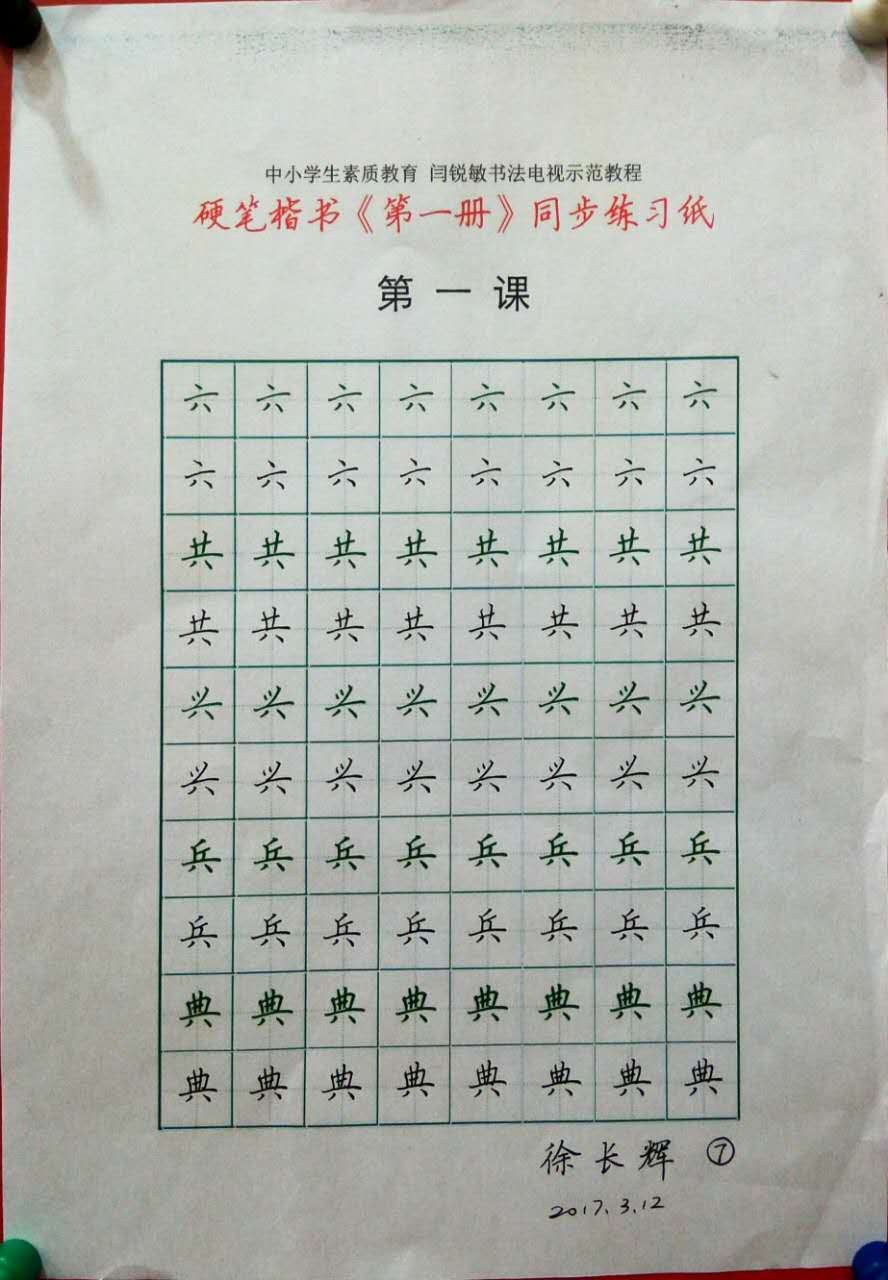 中小学生素质教育 闫锐敏书法电视示范教程
硬笔楷书《第一册》同步练习纸
第一课
六六六六六六六六
六六六六六六六六
共共共共共共共共
共共共共共共共共
兴兴兴兴兴兴兴兴
兴兴兴兴兴兴兴兴
兵兵兵兵兵兵兵兵
兵兵兵兵兵兵兵兵
典典典典典典典典
典典典典典典典典
徐长辉 ⑦
2017.3.12